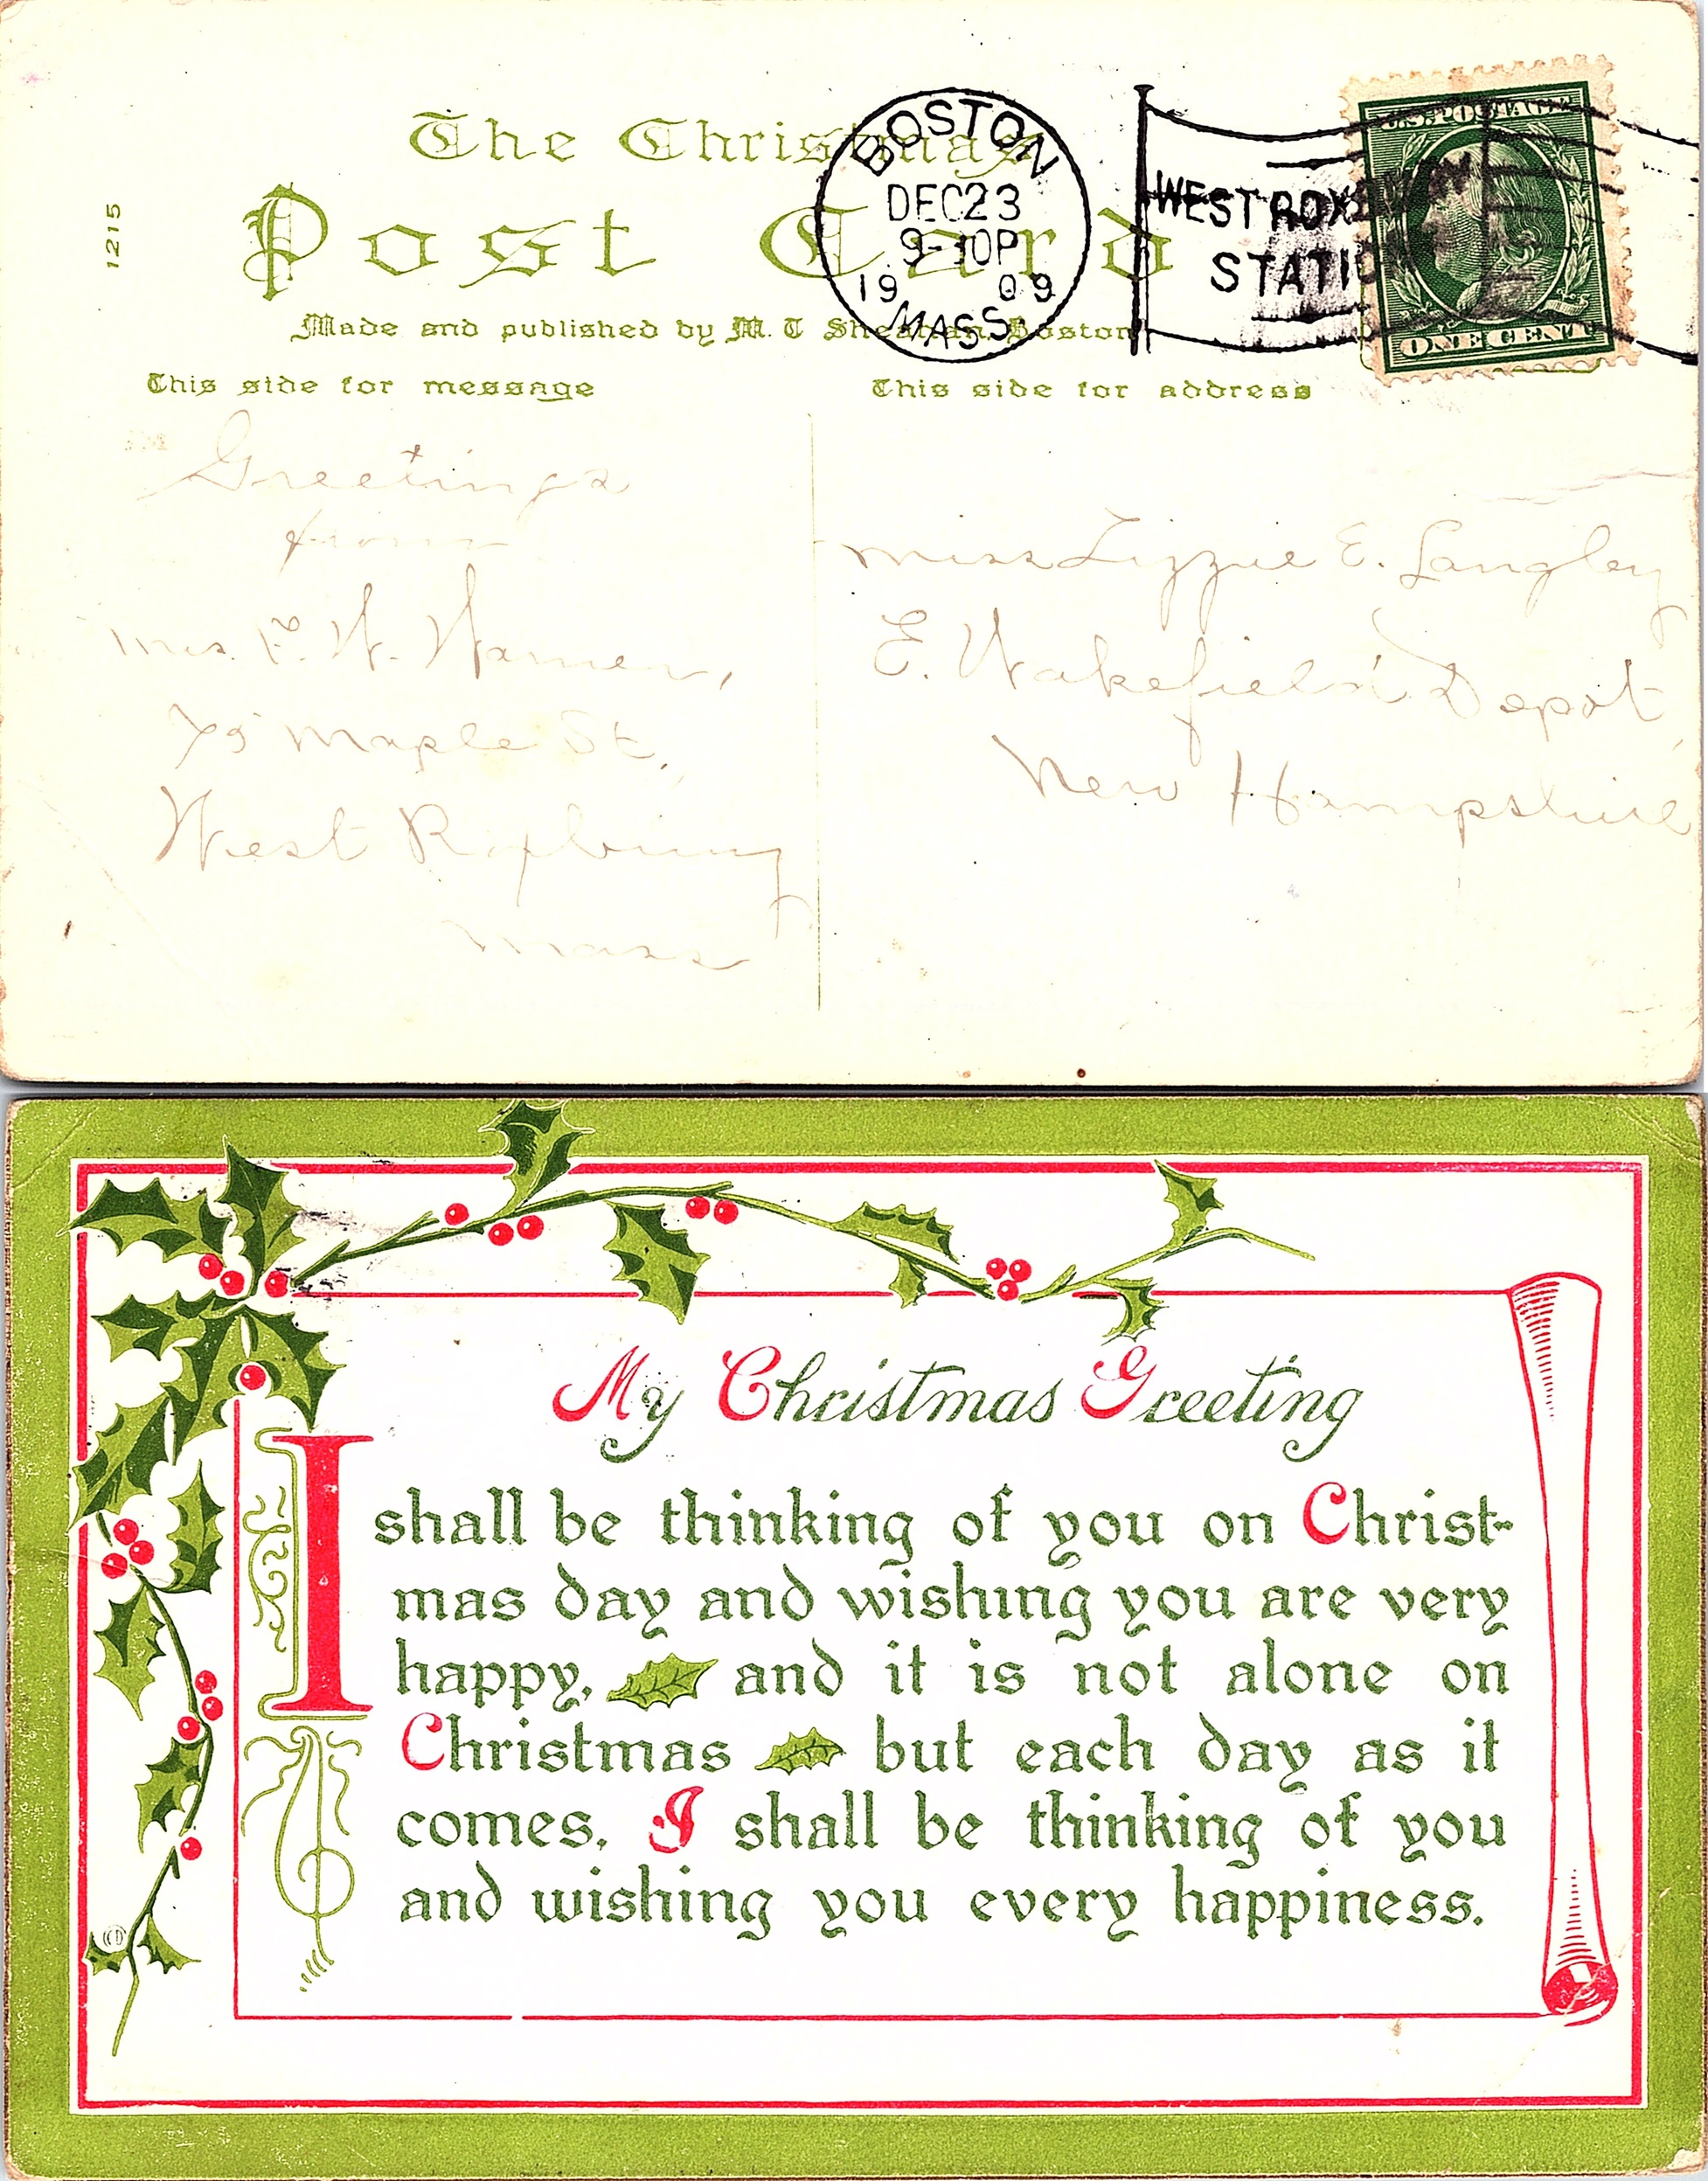 The Christmas
Post Card
1215
Made and published by M. T. Sheahan, Boston
This side for message
This side for address
BOSTON
DEC 23
9-10P
1909
MASS.
WEST ROXBURY
STATION
U.S. POSTAGE
ONE CENT
Greetings
from
Mrs. F. W. Warner,
75 Maple St.,
West Roxbury
Mass
Miss Lizzie E. Langley
E. Wakefield Depot,
New Hampshire
My Christmas Greeting
I shall be thinking of you on Christ-
mas day and wishing you are very
happy, and it is not alone on
Christmas but each day as it
comes, I shall be thinking of you
and wishing you every happiness.